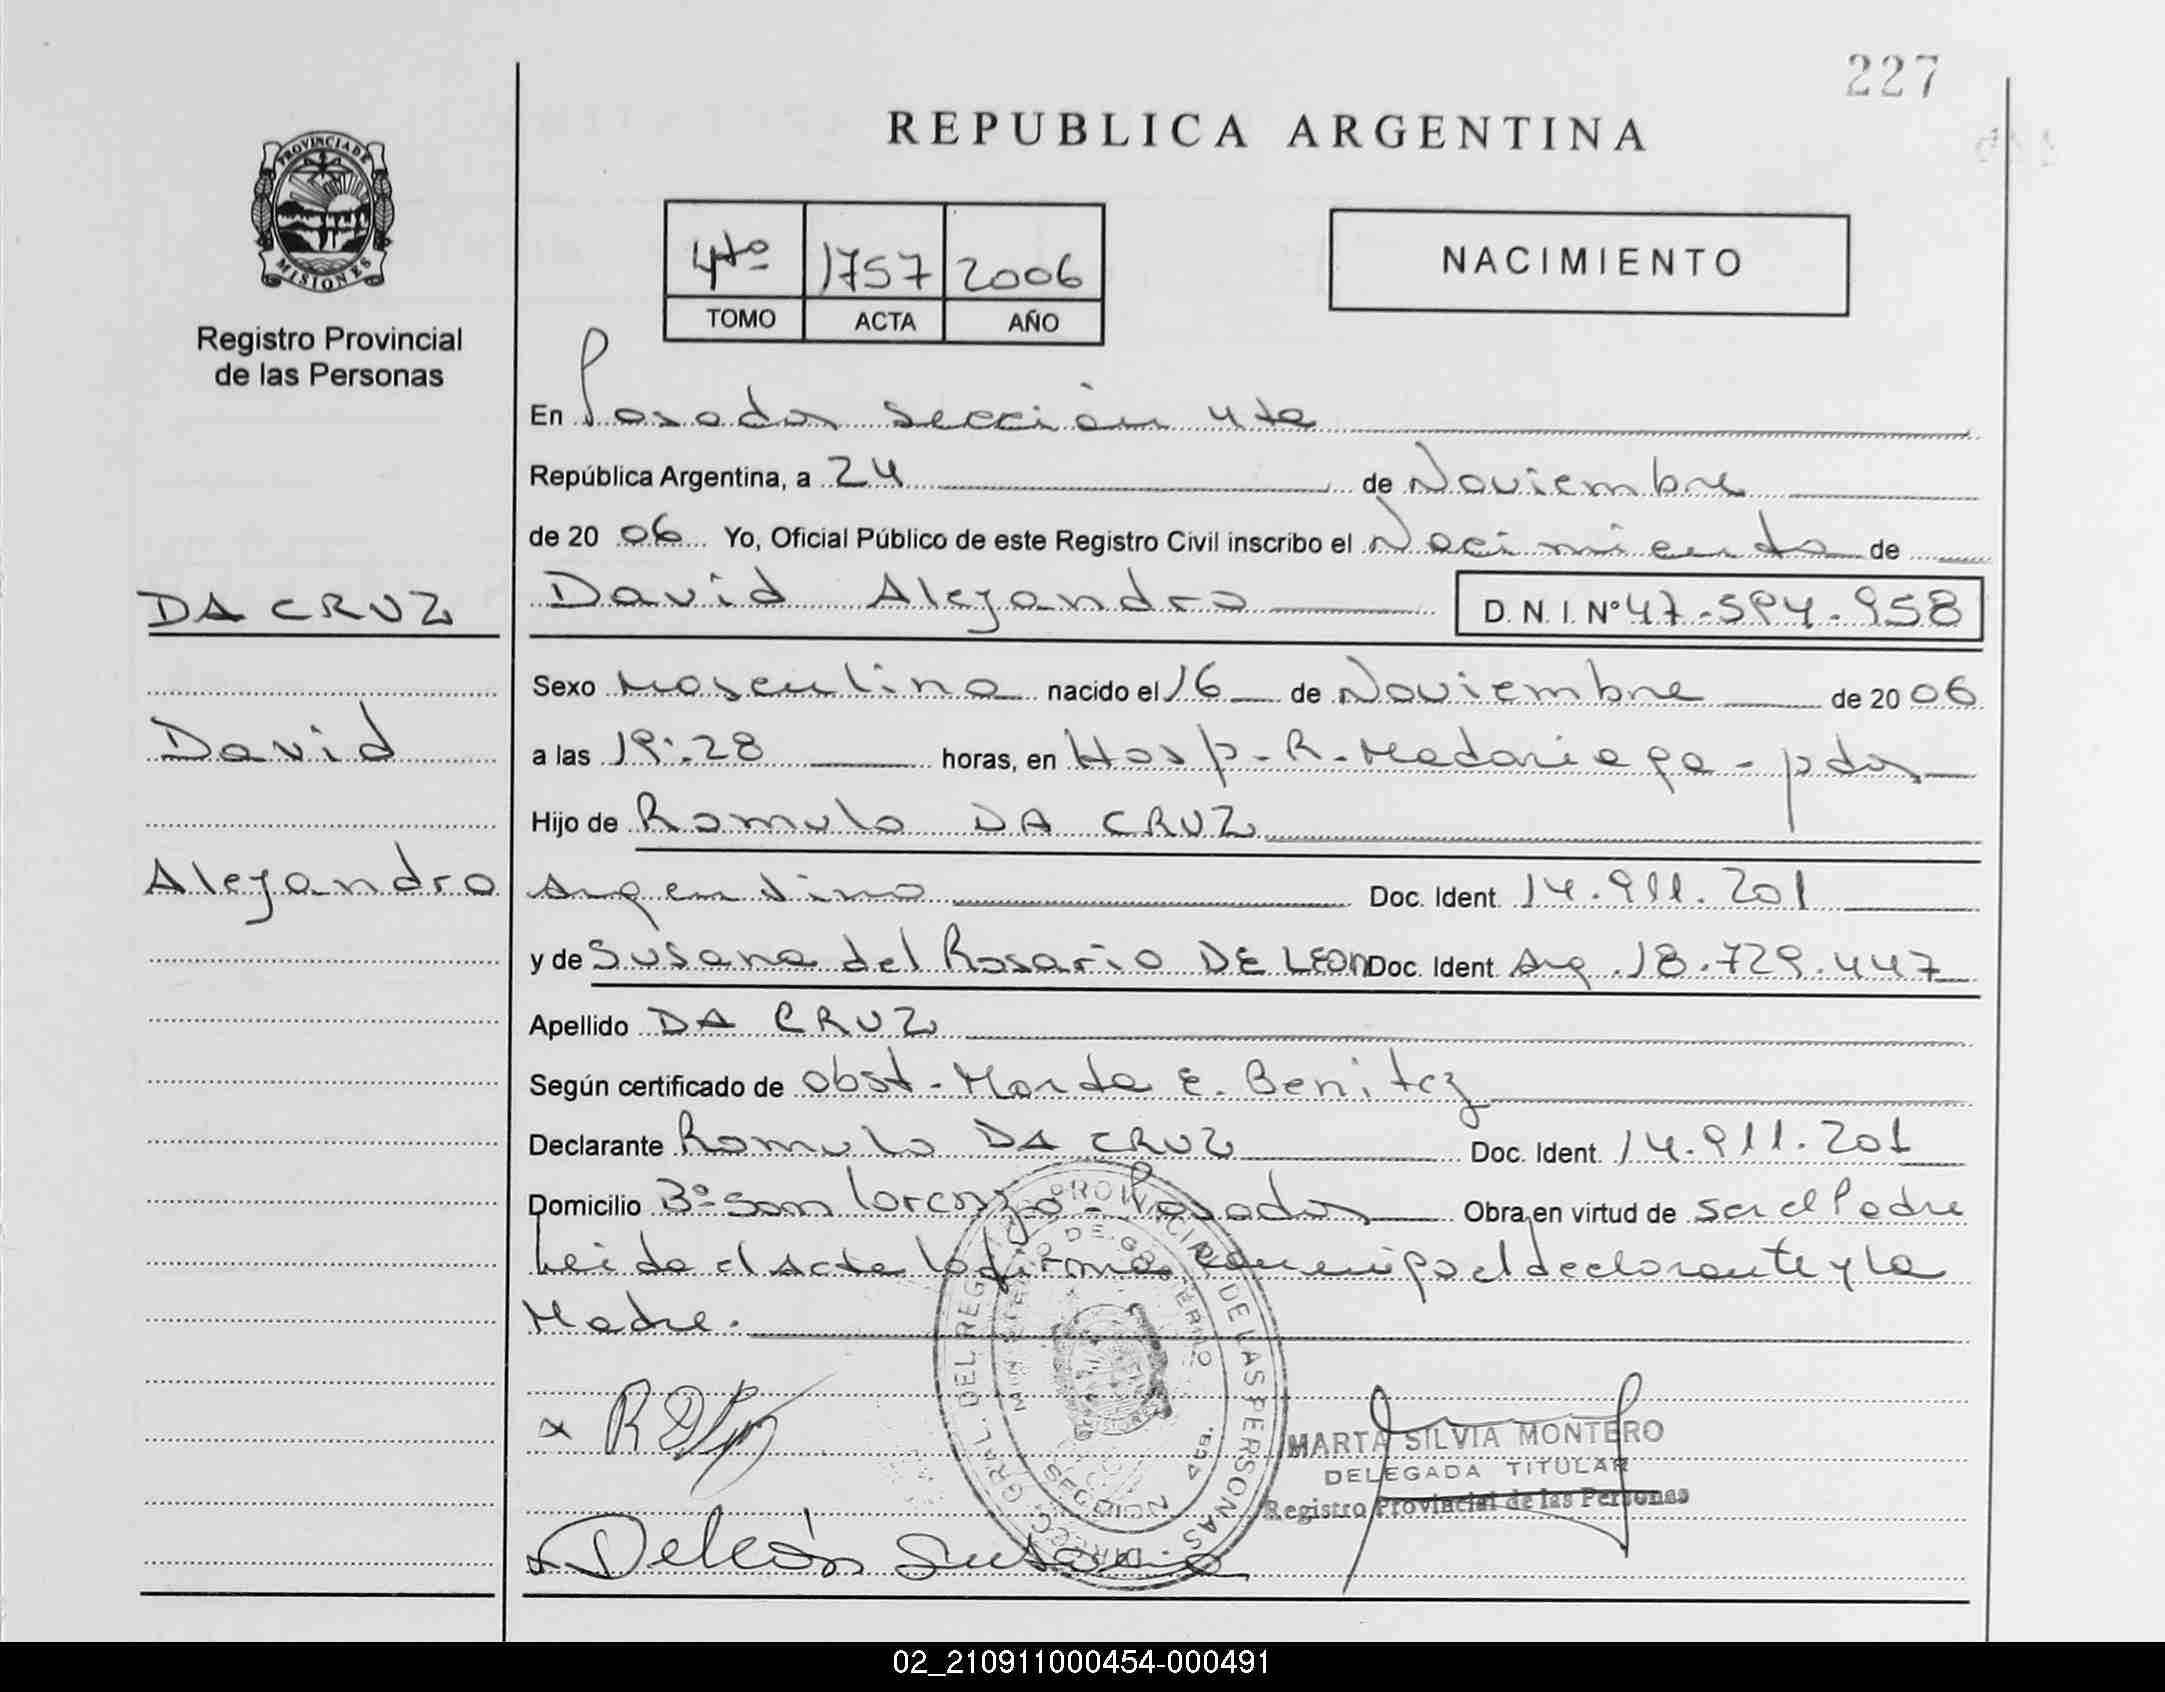 227
REPUBLICA ARGENTINA
PROVINCIA DE
MISIONES
Registro Provincial
de las Personas
4to 1757 2006
TOMO ACTA AÑO
NACIMIENTO
En Posadas sección 4ta
República Argentina, a 24 de Noviembre
de 20 06 Yo, Oficial Público de este Registro Civil inscribo el Nacimiento de
DA CRUZ
David Alejandro D.N.I. Nº 47.594.958
Sexo Masculino nacido el 16 de Noviembre de 20 06
David
a las 19:28 horas, en Hosp-R-Madariaga-pdas
Hijo de Romulo DA CRUZ
Alejandro
Argentino Doc. Ident. 14.911.201
y de Susana del Rosario DE LEON Doc. Ident Arg. 18.729.447
Apellido DA CRUZ
Según certificado de obst-Marta E. Benitez
Declarante Romulo DA CRUZ Doc. Ident. 14.911.201
Domicilio Bº San Lorenzo-Posadas Obra en virtud de ser el Padre
Leida el Acta la firma conmigo el declarante y la
Madre.
DIRECC. GRAL. DEL REGISTRO PROVINCIAL DE LAS PERSONAS
MINISTERIO DE GOBIERNO
MARTA SILVIA MONTERO
DELEGADA TITULAR
Registro Provincial de las Personas
Deleón Susana
02_210911000454-000491